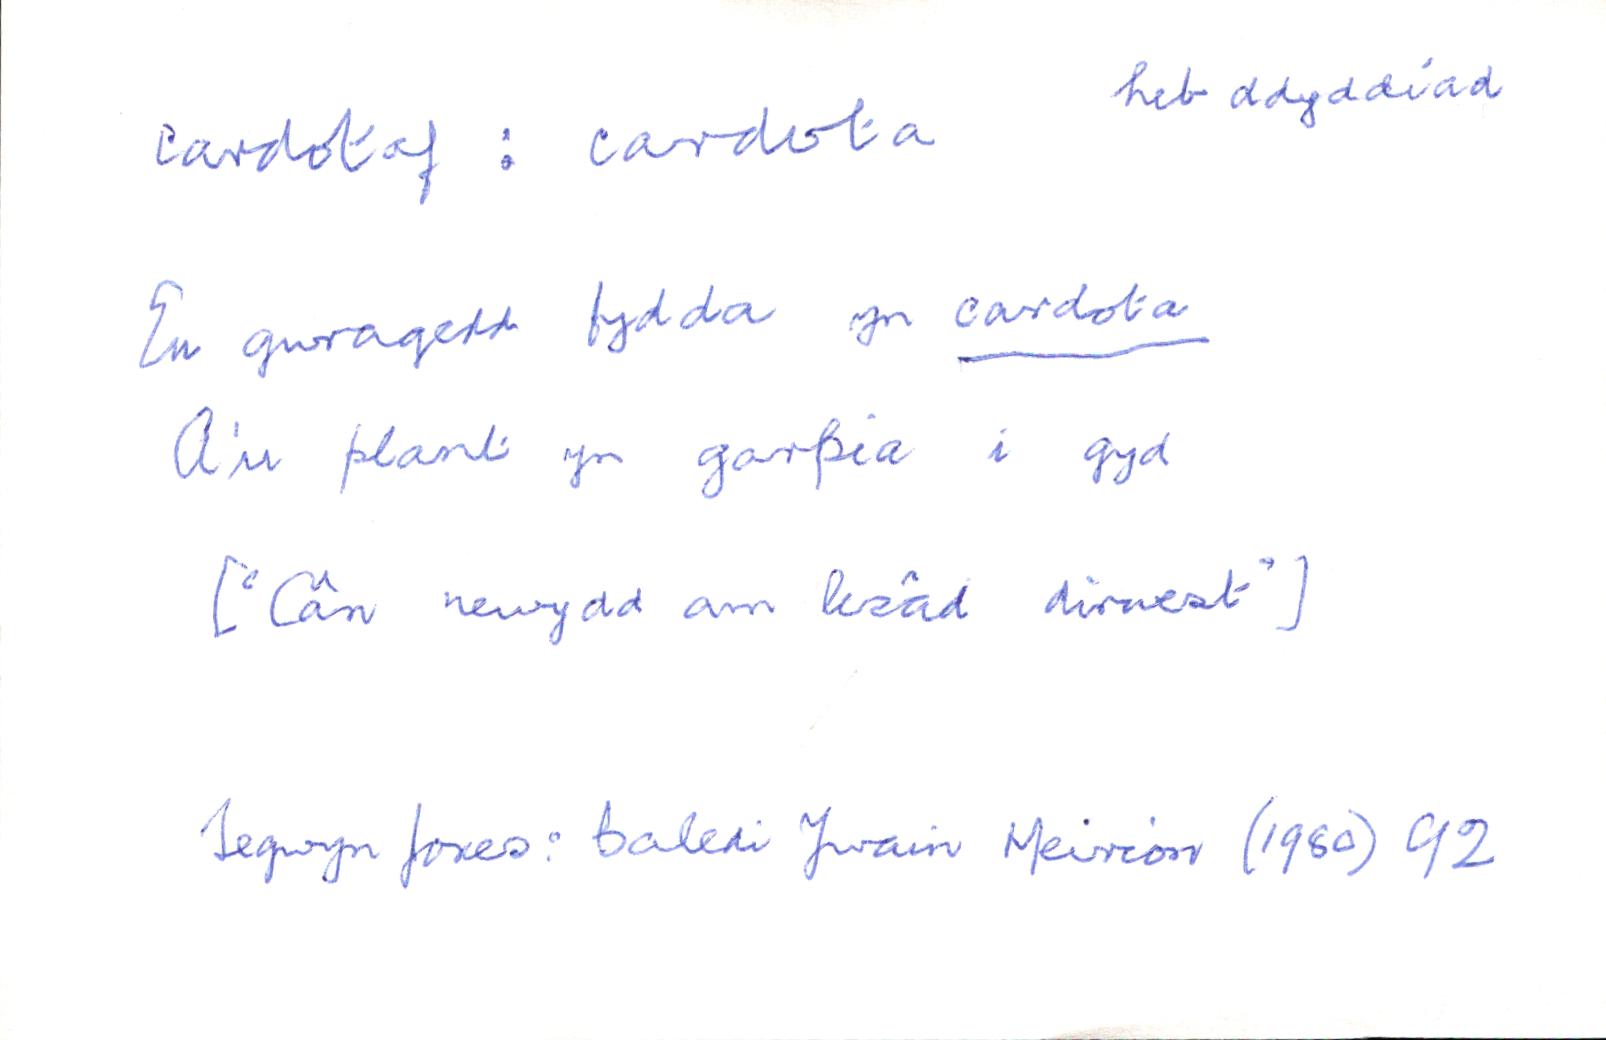 heb ddyddiad
cardotaf : cardota
Eu gwragedd fydda yn cardota
A'u plant yn garpia i gyd
["Cân newydd am lesâd dirwest"]
Tegwyn Jones: Baledi Ywain Meirion (1980) 92